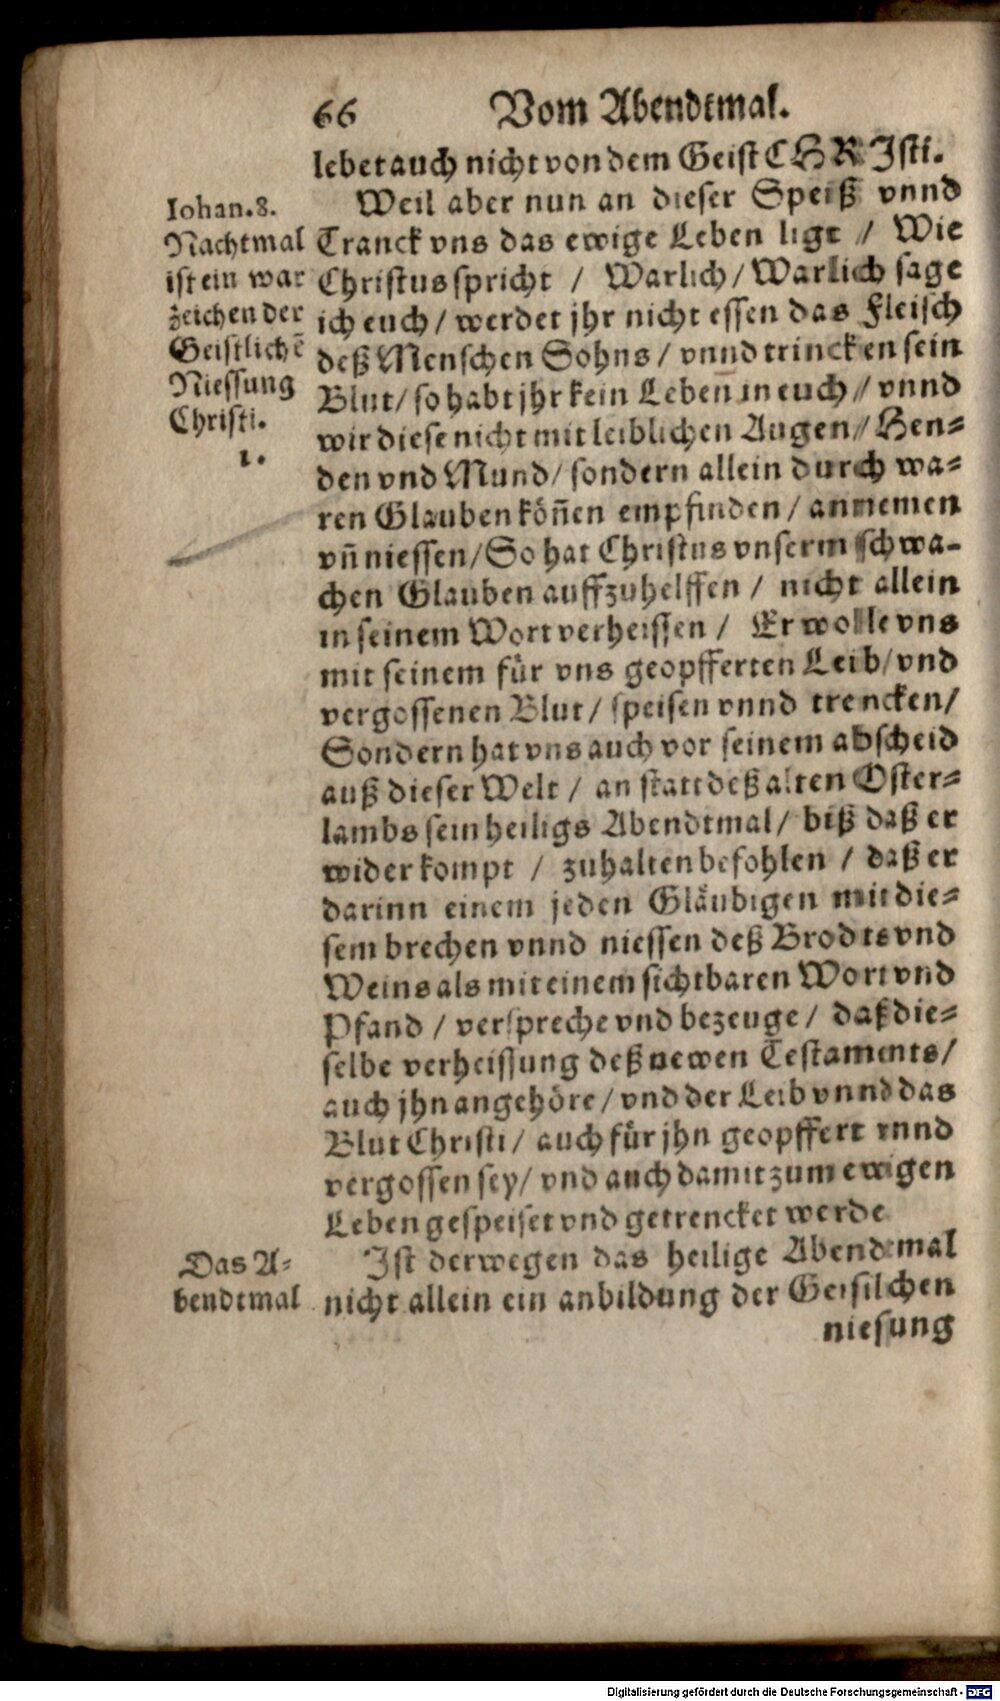 66 Vom Abendtmal.
lebet auch nicht von dem Geist CHRIsti.
Weil aber nun an dieser Speiß vnnd
Tranck vns das ewige Leben ligt / Wie
Christus spricht / Warlich / Warlich sage
ich euch / werdet jhr nicht essen das Fleisch
deß Menschen Sohns / vnnd trincken sein
Blut / so habt jhr kein Leben in euch / vnnd
wir diese nicht mit leiblichen Augen / Hen=
den vnd Mund / sondern allein durch wa=
ren Glauben köñen empfinden / annemen
vñ niessen / So hat Christus vnserm schwa-
chen Glauben auffzuhelffen / nicht allein
in seinem Wort verheissen / Er wolle vns
mit seinem für vns geopfferten Leib / vnd
vergossenen Blut / speisen vnnd trencken /
Sondern hat vns auch vor seinem abscheid
auß dieser Welt / an statt deß alten Oster=
lambs sein heiligs Abendtmal / biß daß er
wider kompt / zuhalten befohlen / daß er
darinn einem jeden Gläubigen mit die=
sem brechen vnnd niessen deß Brodts vnd
Weins als mit einem sichtbaren Wort vnd
Pfand / verspreche vnd bezeuge / daß die=
selbe verheissung deß newen Testaments /
auch jhn angehöre / vnd der Leib vnnd das
Blut Christi / auch für jhn geopffert vnnd
vergossen sey / vnd auch damit zum ewigen
Leben gespeiset vnd getrencket werde
Ist derwegen das heilige Abendtmal
nicht allein ein anbildung der Geistlichen
niesung
Iohan. 8.
Nachtmal
ist ein war
zeichen der
Geistlichẽ
Niessung
Christi.
1.
Das A=
bendtmal
Digitalisierung gefördert durch die Deutsche Forschungsgemeinschaft - DFG